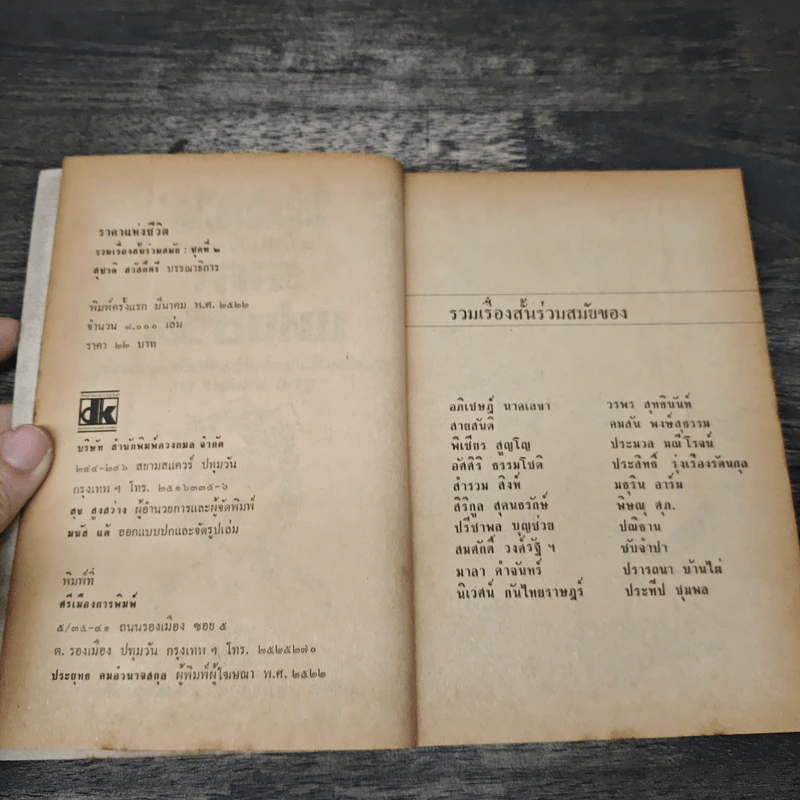 ราคาแห่งชีวิต
รวมเรื่องสั้นร่วมสมัย : ชุดที่ ๒
สุชาติ สวัสดิ์ศรี บรรณาธิการ
พิมพ์ครั้งแรก มีนาคม พ.ศ. ๒๕๒๒
จำนวน ๘,๐๐๐ เล่ม
ราคา ๒๒ บาท
dk
บริษัท สำนักพิมพ์ดวงกมล จำกัด
๒๔๔-๒๔๖ สยามสแควร์ ปทุมวัน
กรุงเทพ ฯ โทร. ๒๕๑๖๓๓๕-๖
สุข สูงสว่าง ผู้อำนวยการและผู้จัดพิมพ์
มนัส แต้ ออกแบบปกและจัดรูปเล่ม
พิมพ์ที่
ศรีเมืองการพิมพ์
๕/๓๕-๔๑ ถนนรองเมือง ซอย ๕
ต. รองเมือง ปทุมวัน กรุงเทพ ฯ โทร. ๒๕๒๕๒๗๐
ประยุทธ คมอำนาจสกุล ผู้พิมพ์ผู้โฆษณา พ.ศ. ๒๕๒๒
รวมเรื่องสั้นร่วมสมัยของ
อภิเชษฎ์ นาคเลขา วรพร สุทธินันท์
สายสันติ คมสัน พงษ์สุธรรม
พิเชียร สูญโญ ประมวล มณีโรจน์
อัศศิริ ธรรมโชติ ประสิทธิ์ รุ่งเรืองรัตนกุล
สำรวม สิงห์ มธุริน อาร์ม
สิริกูล สุคนธรักษ์ พิษณุ ศุภ.
ปรีชาพล บุญช่วย ปณิธาน
สมศักดิ์ วงศ์รัฐ ฯ ชันจำปา
มาลา คำจันทร์ ปรารถนา บ้านไผ่
นิเวศน์ กันไทยราษฎร์ ประทีป ชุมพล